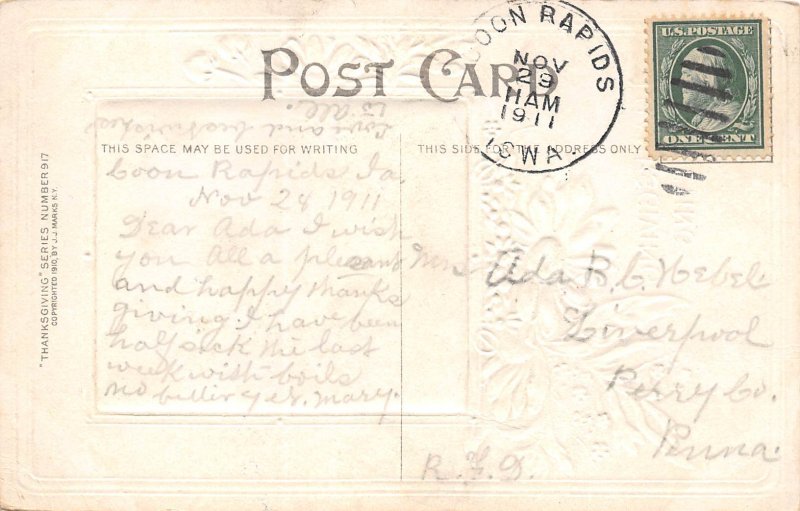 POST CARD
COON RAPIDS
NOV
29
11AM
1911
IOWA.
U.S. POSTAGE
ONE CENT
THIS SPACE MAY BE USED FOR WRITING
THIS SIDE FOR THE ADDRESS ONLY
"THANKSGIVING" SERIES NUMBER 917
COPYRIGHTED 1910, BY J.J. MARKS N.Y.
Love and best wishes
to All.
Coon Rapids Ia
Nov 28 1911
Dear Ada I wish
you All a pleasant
and happy thanks
giving. I have been
half sick the last
week with boils
no better yet. Mary.
Mrs Ada B. C.
Liverpool
Perry Co.
Penna.
R.F.D.